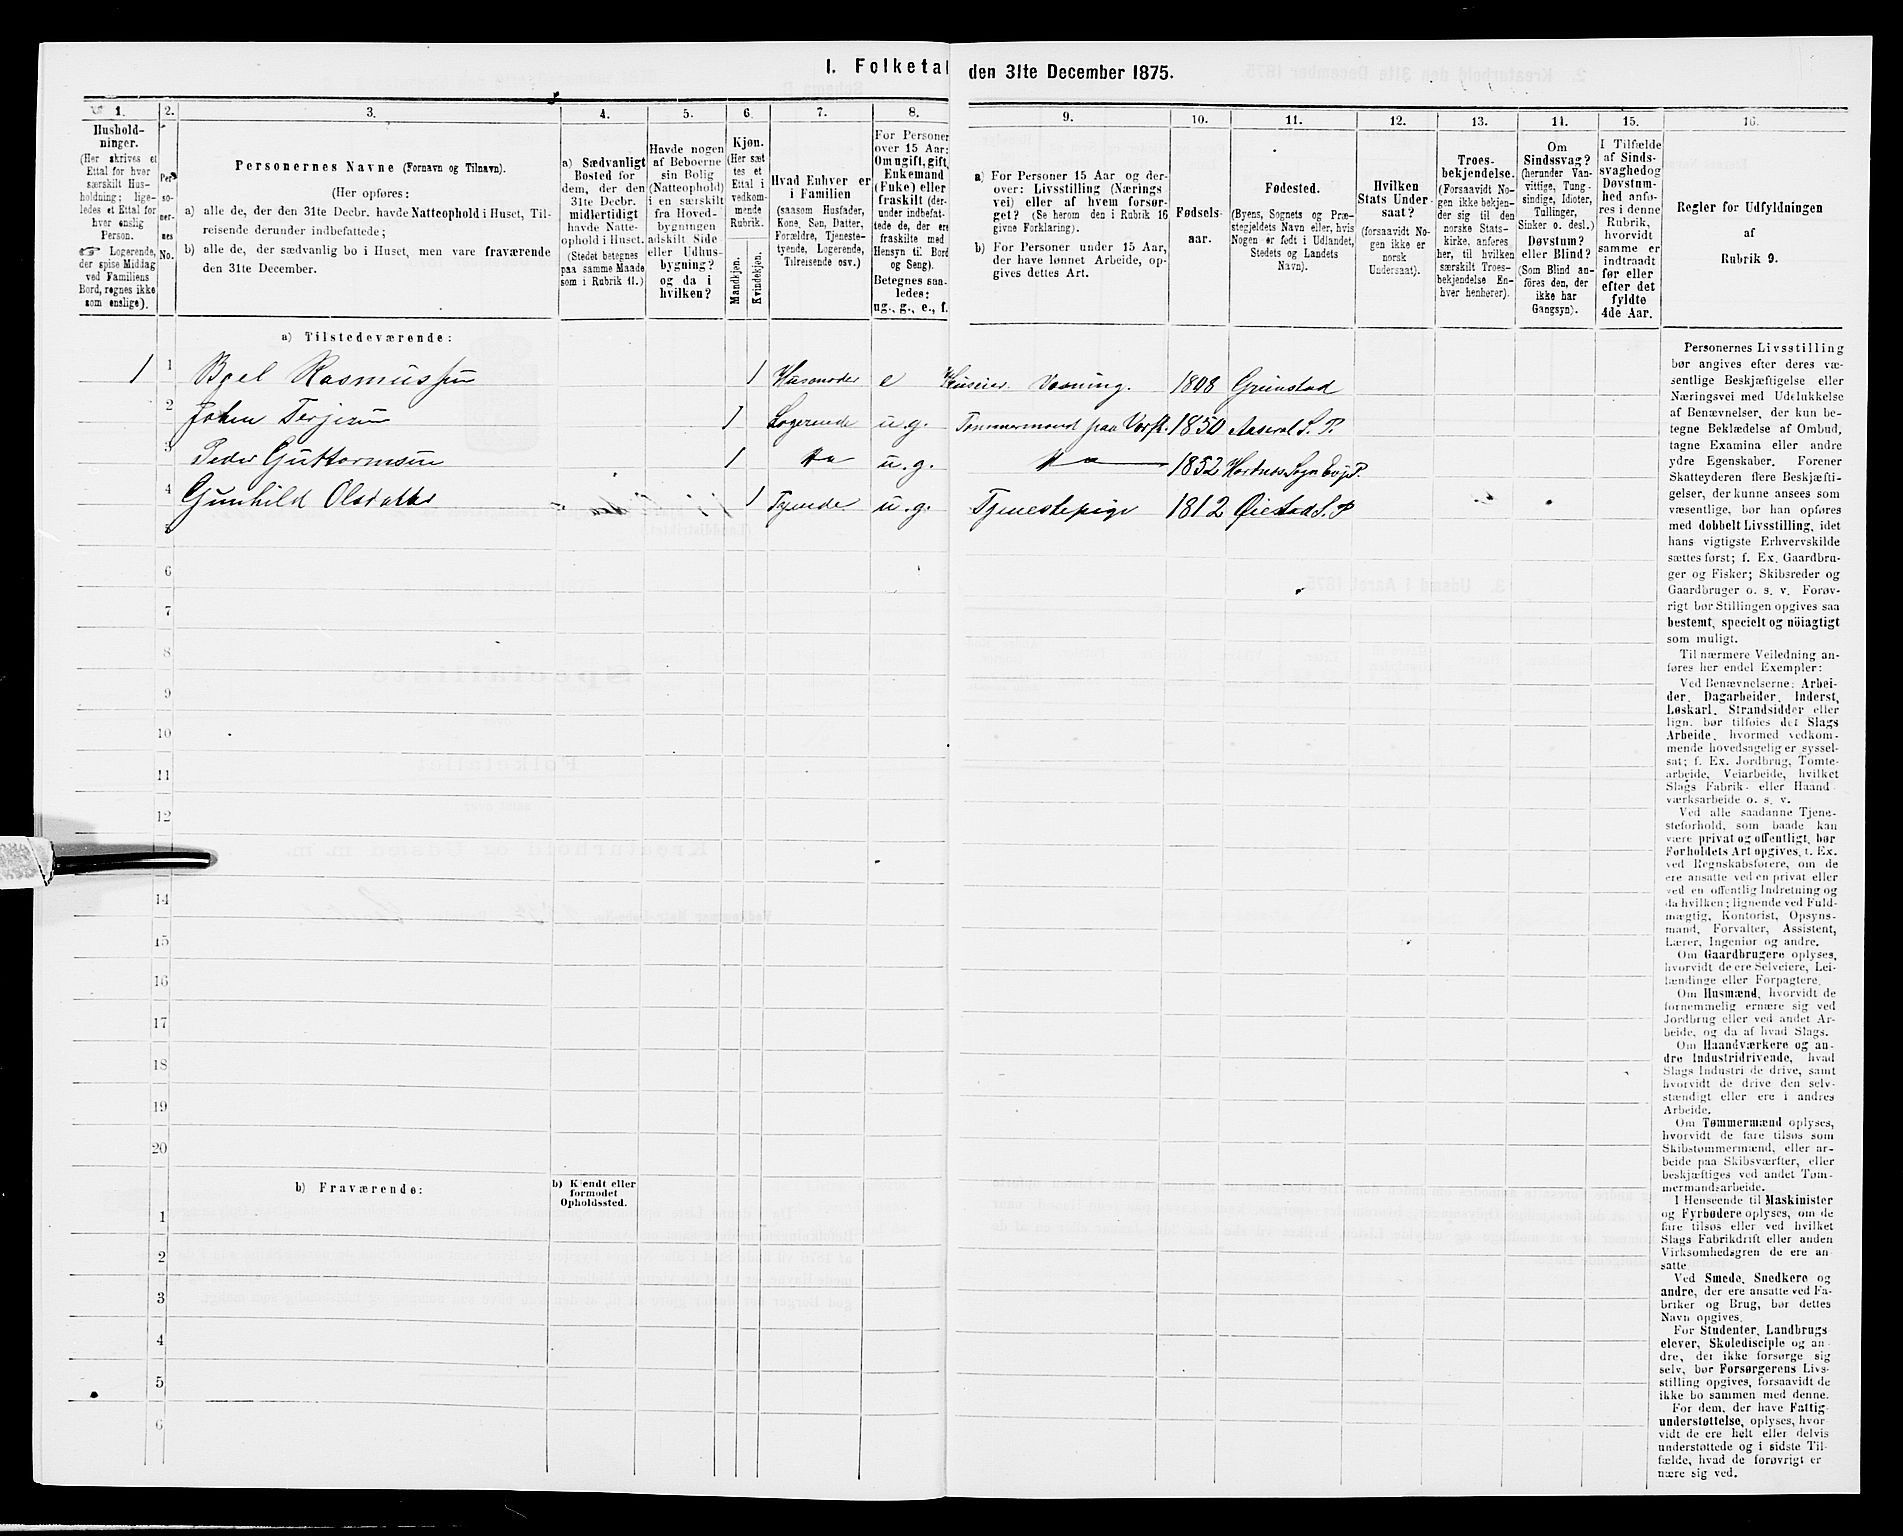 I. Folketal den 31te December 1875.
1. 2. 3. 4. 5. 6. 7. 8. 9. 10. 11. 12. 13. 14. 15. 16.
Hushold-
ninger.
(Her skrives et
Ettal for hver
særskilt Hus-
holdning; lige-
ledes et Ettal for
hver enslig
Person.
☞ Logerende,
der spise Middag
ved Familiens
Bord, regnes ikke
som enslige).
Per-
so-
ner-
nes
No.
Personernes Navne (Fornavn og Tilnavn).
(Her opføres:
a) alle de, der den 31te Decbr. havde Natteophold i Huset, Til-
reisende derunder indbefattede;
b) alle de, der sædvanlig bo i Huset, men vare fraværende
den 31te December.
a) Sædvanligt
Bosted for
dem, der den
31te Decbr.
midlertidigt
havde Natte-
ophold i Huset.
(Stedet betegnes
paa samme Maade
som i Rubrik 11.)
Havde nogen
af Beboerne
sin Bolig
(Natteophold)
i en særskilt
fra Hoved-
bygningen
adskilt Side-
eller Udhus-
bygning?
og da i
hvilken?
Kjøn.
(Her sæt-
tes et
Ettal i
vedkom-
mende
Rubrik.
Mandkjøn.
Kvindekjøn.
Hvad Enhver er
i Familien
(saasom Husfader,
Kone, Søn, Datter,
Forældre, Tjeneste-
tyende, Logerende,
Tilreisende osv.)
For Personer
over 15 Aar:
Om ugift, gift,
Enkemand
(Enke) eller
fraskilt (der-
under indbefat-
tede de, der ere
fraskilte med
Hensyn til Bord
og Seng).
Betegnes saa-
ledes:
ug., g., e., f.
a) For Personer 15 Aar og der-
over: Livsstilling (Nærings
vei) eller af hvem forsør-
get? (Se herom den i Rubrik 16
givne Forklaring).
b) For Personer under 15 Aar,
der have lønnet Arbeide, op-
gives dettes Art.
Fødsels-
aar.
Fødested.
(Byens, Sognets og Præ-
stegjeldets Navn eller, hvis
Nogen er født i Udlandet,
Stedets og Landets
Navn).
Hvilken
Stats Under-
saat?
(forsaavidt No-
gen ikke er
norsk
Undersaat).
Troes-
bekjendelse.
(Forsaavidt No-
gen ikke bekjen-
der sig til den
norske Stats-
kirke, anføres
her, til hvilken
særskilt Troes-
bekjendelse En-
hver henhører).
Om
Sindssvag?
(herunder Van-
vittige, Tung-
sindige, Idioter,
Tullinger,
Sinker o. desl.)
Døvstum?
eller Blind?
(Som Blind an-
føres den, der
ikke har
Gangsyn).
I Tilfælde
af Sinds-
svaghed og
Døvstum-
hed anfø-
res i denne
Rubrik,
hvorvidt
samme er
indtraadt
før eller
efter det
fyldte
4de Aar.
Regler for Udfyldningen
af
Rubrik 9.
a) Tilstedeværende:
1 1 Rasmussen 1 Husmoder e 1808 Grimstad
2 Johen Terjesen 1 Logerende u.g. Tømmermand paa Værft. 1850 Aaseral S. P.
3 Peder Guttormsen 1 u.g. 1852
4 Gunhild Olsdatter 1 Tyende u.g. Tjenestepige 1812 Øiestad S. P
5
6
7
8
9
10
11
12
14
15
16
17
18
19
20
b) Fraværende:
b) Kjendt eller
formodet
Opholdssted.
1
2
3
4
5
6
Personernes Livsstilling
bør angives efter deres væ-
sentlige Beskjæftigelse eller
Næringsvei med Udelukkelse
af Benævnelser, der kun be-
tegne Beklædelse af Ombud,
tagne Examina eller andre
ydre Egenskaber. Forener
Skatteyderen flere Beskjæfti-
gelser, der kunne ansees som
væsentlige, bør han opføres
med dobbelt Livsstilling, idet
hans vigtigste Erhvervskilde
sættes først; f. Ex. Gaardbru-
ger og Fisker; Skibsreder og
Gaardbruger o. s. v. Forøv-
rigt bør Stillingen opgives saa
bestemt, specielt og nöiagtigt
som muligt.
Til nærmere Veiledning an-
føres her endel Exempler:
Ved Benævnelserne: Arbei-
der, Dagarbeider, Inderst,
Løskarl, Strandsidder eller
lign. bør tilføies det Slags
Arbeide, hvormed vedkom-
mende hovedsagelig er syssel-
sat; f. Ex. Jordbrug, Tomte-
arbeide, Veiarbeide, hvilket
Slags Fabrik- eller Haand-
værksarbeide o. s. v.
Ved alle saadanne Tjene-
steforhold, som baade kan
være privat og offentligt, bør
Forholdets Art opgives, t. Ex.
ved Regnskabsførere, om de
ere ansatte ved en privat eller
ved en offentlig Indretning og
da hvilken; lignende ved Fuld-
mægtig, Kontorist, Opsyns-
mand, Forvalter, Assistent,
Lærer, Ingeniør og andre.
Om Gaardbrugere oplyses,
hvorvidt de ere Selveiere, Lei-
lændinge eller Forpagtere.
Om Husmænd, hvorvidt de
fornemmelig ernære sig ved
Jordbrug eller ved andet Ar-
beide, og da af hvad Slags.
Om Haandværkere og an-
dre Industridrivende, hvad
Slags Industri de drive, samt
hvorvidt de drive den selv-
stændigt eller ere i andres
Arbeide.
Om Tømmermænd oplyses,
hvorvidt de fare tilsøs som
Skibstømmermænd, eller ar-
beide paa Skibsværfter, eller
beskjæftiges ved andet Tøm-
mermandsarbeide.
I Henseende til Maskinister
og Fyrbødere oplyses, om de
fare tilsøs eller ved hvilket
Slags Fabrikdrift eller anden
Virksomhedsgren de ere an-
satte
Ved Smede, Snedkere og
andre, der ere ansatte ved Fa-
briker og Brug, bør dettes
Navn opgives.
For Studenter, Landbrugs
elever, Skoledisciple og an-
dre, der ikke forsørge sig
selv, bør Forsørgerens Livs-
stilling opgives, forsaavidt de
ikke bo sammen med denne.
For dem, der have Fattig-
understøttelse, oplyses, hvor-
vidt de ere helt eller delvis
understøttede og i sidste Til-
fælde, hvad de forøvrigt er-
nære sig ved.